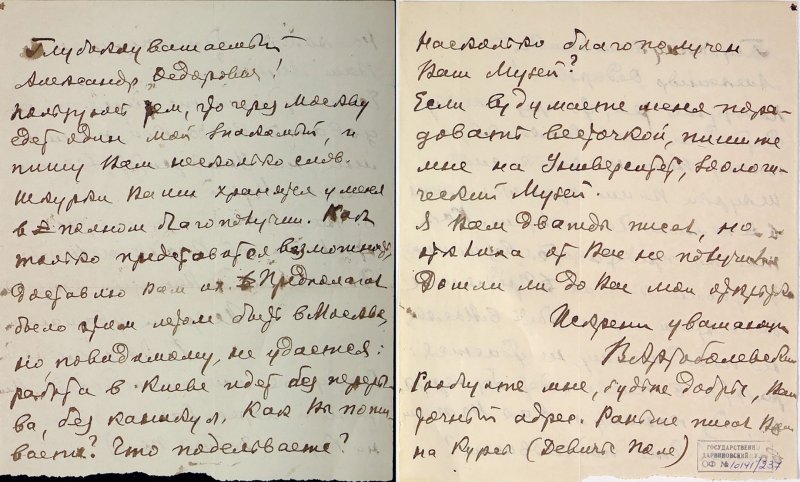 Глубокоуважаемый
Александр Федорович!
Пользуюсь тем, что через Москву
едет один мой знакомый, и
пишу Вам несколько слов.
Шкурки Ваши хранятся у меня
в полном благополучии. Как
только представится возможность,
доставлю Вам их. Предполагал
было этим летом быть в Москве,
но, повидимому, не удастся:
работа в Киеве идет без переры-
ва, без каникул. Как Вы пожи-
ваете? Что поделываете?
Насколько благополучен
Ваш Музей?
Если вздумаете меня пора-
довать весточкой, пишите
мне на Университет, Зоологи-
ческий Музей
Я Вам дважды писал, но
ответа от Вас не получил
Дошли ли до Вас мои открытки
Искренно уважающий
Сообщите мне, будьте добры, Ваш
точный адрес. Раньше писал Вам
на Курсы (Девичье Поле)
ГОСУДАРСТВЕНН
ДАРВИНОВСКИЙ
ОФ № 10141/237